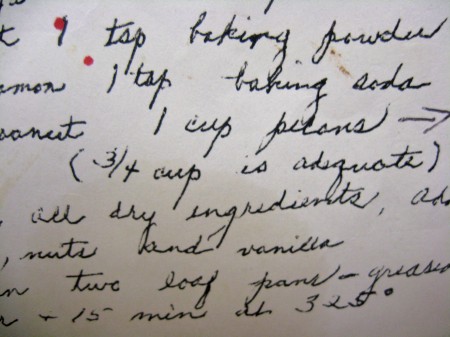 t 1 tsp baking powder
amon 1 tsp baking soda
oanut 1 cup pecans →
(3/4 cup is adequate)
, all dry ingredients, add
, nuts and vanilla
in two loaf pans - greased
r + 15 min at 325°